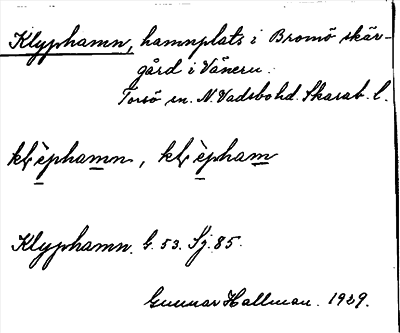 Klyphamn, hamnplats i Bromö skär-
gård i Vänern.
Torsö sn. N. Vadsbo hd. Skarab. l.
Klyphamn. G. 53. Sj. 85.
Gunnar Hallman. 1929.